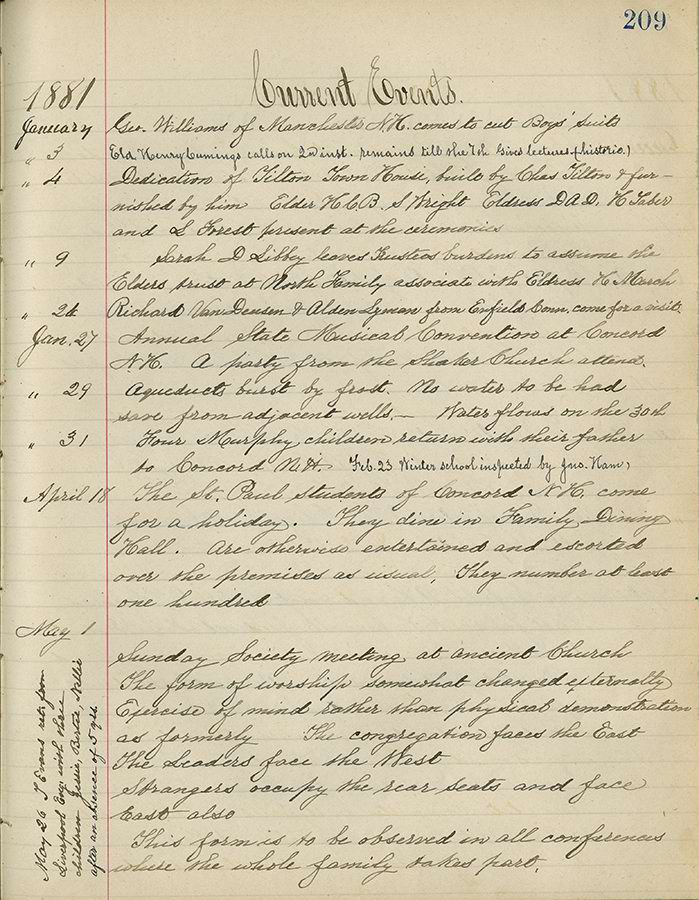 209
1881 Current Events.
January Geo. Williams of Manchester N.H. comes to cut Boys' suits
" 3 Eld. Henry Cumings calls on 2nd inst. remains till the 7th Gives lectures, historic.)
" 4 Dedication of Tilton Town House, built by Chas Tilton & fur-
nished by him Elder H.C.B. S Wright Eldress D A D, H Taber
and L Forest present at the ceremonies
" 9 Sarah D Libbey leaves trustees burdens to assume the
Elders trust at North Family associate with Eldress H March
" 26 Richard Van Deusen & Alden Lyman from Enfield Conn. come for a visit.
Jan. 27 Annual State Musical Convention at Concord
N.H. A party from the Shaker Church attend.
" 29 Aqueducts burst by frost. No water to be had
save from adjacent wells. — Water flows on the 30th
" 31 Four Murphy children return with their father
to Concord N.H. Feb. 23 Winter school inspected by Jno. Ham,
April 18 The St. Paul students of Concord N.H. come
for a holiday. They dine in Family Dining
Hall. Are otherwise entertained and escorted
over the premises as usual. They number at least
one hundred
May 1
Sunday Society meeting at ancient Church
The form of worship somewhat changed externally
Exercise of mind rather than physical demonstration
as formerly The congregation faces the East
The Leaders face the West
Strangers occupy the rear seats and face
East also
This form is to be observed in all conferences
where the whole family takes part.
May 26 J Evans rets from
Liverpool Eng. with three
children Jessie, Bertie, Nellie
after an absence of 5 yrs